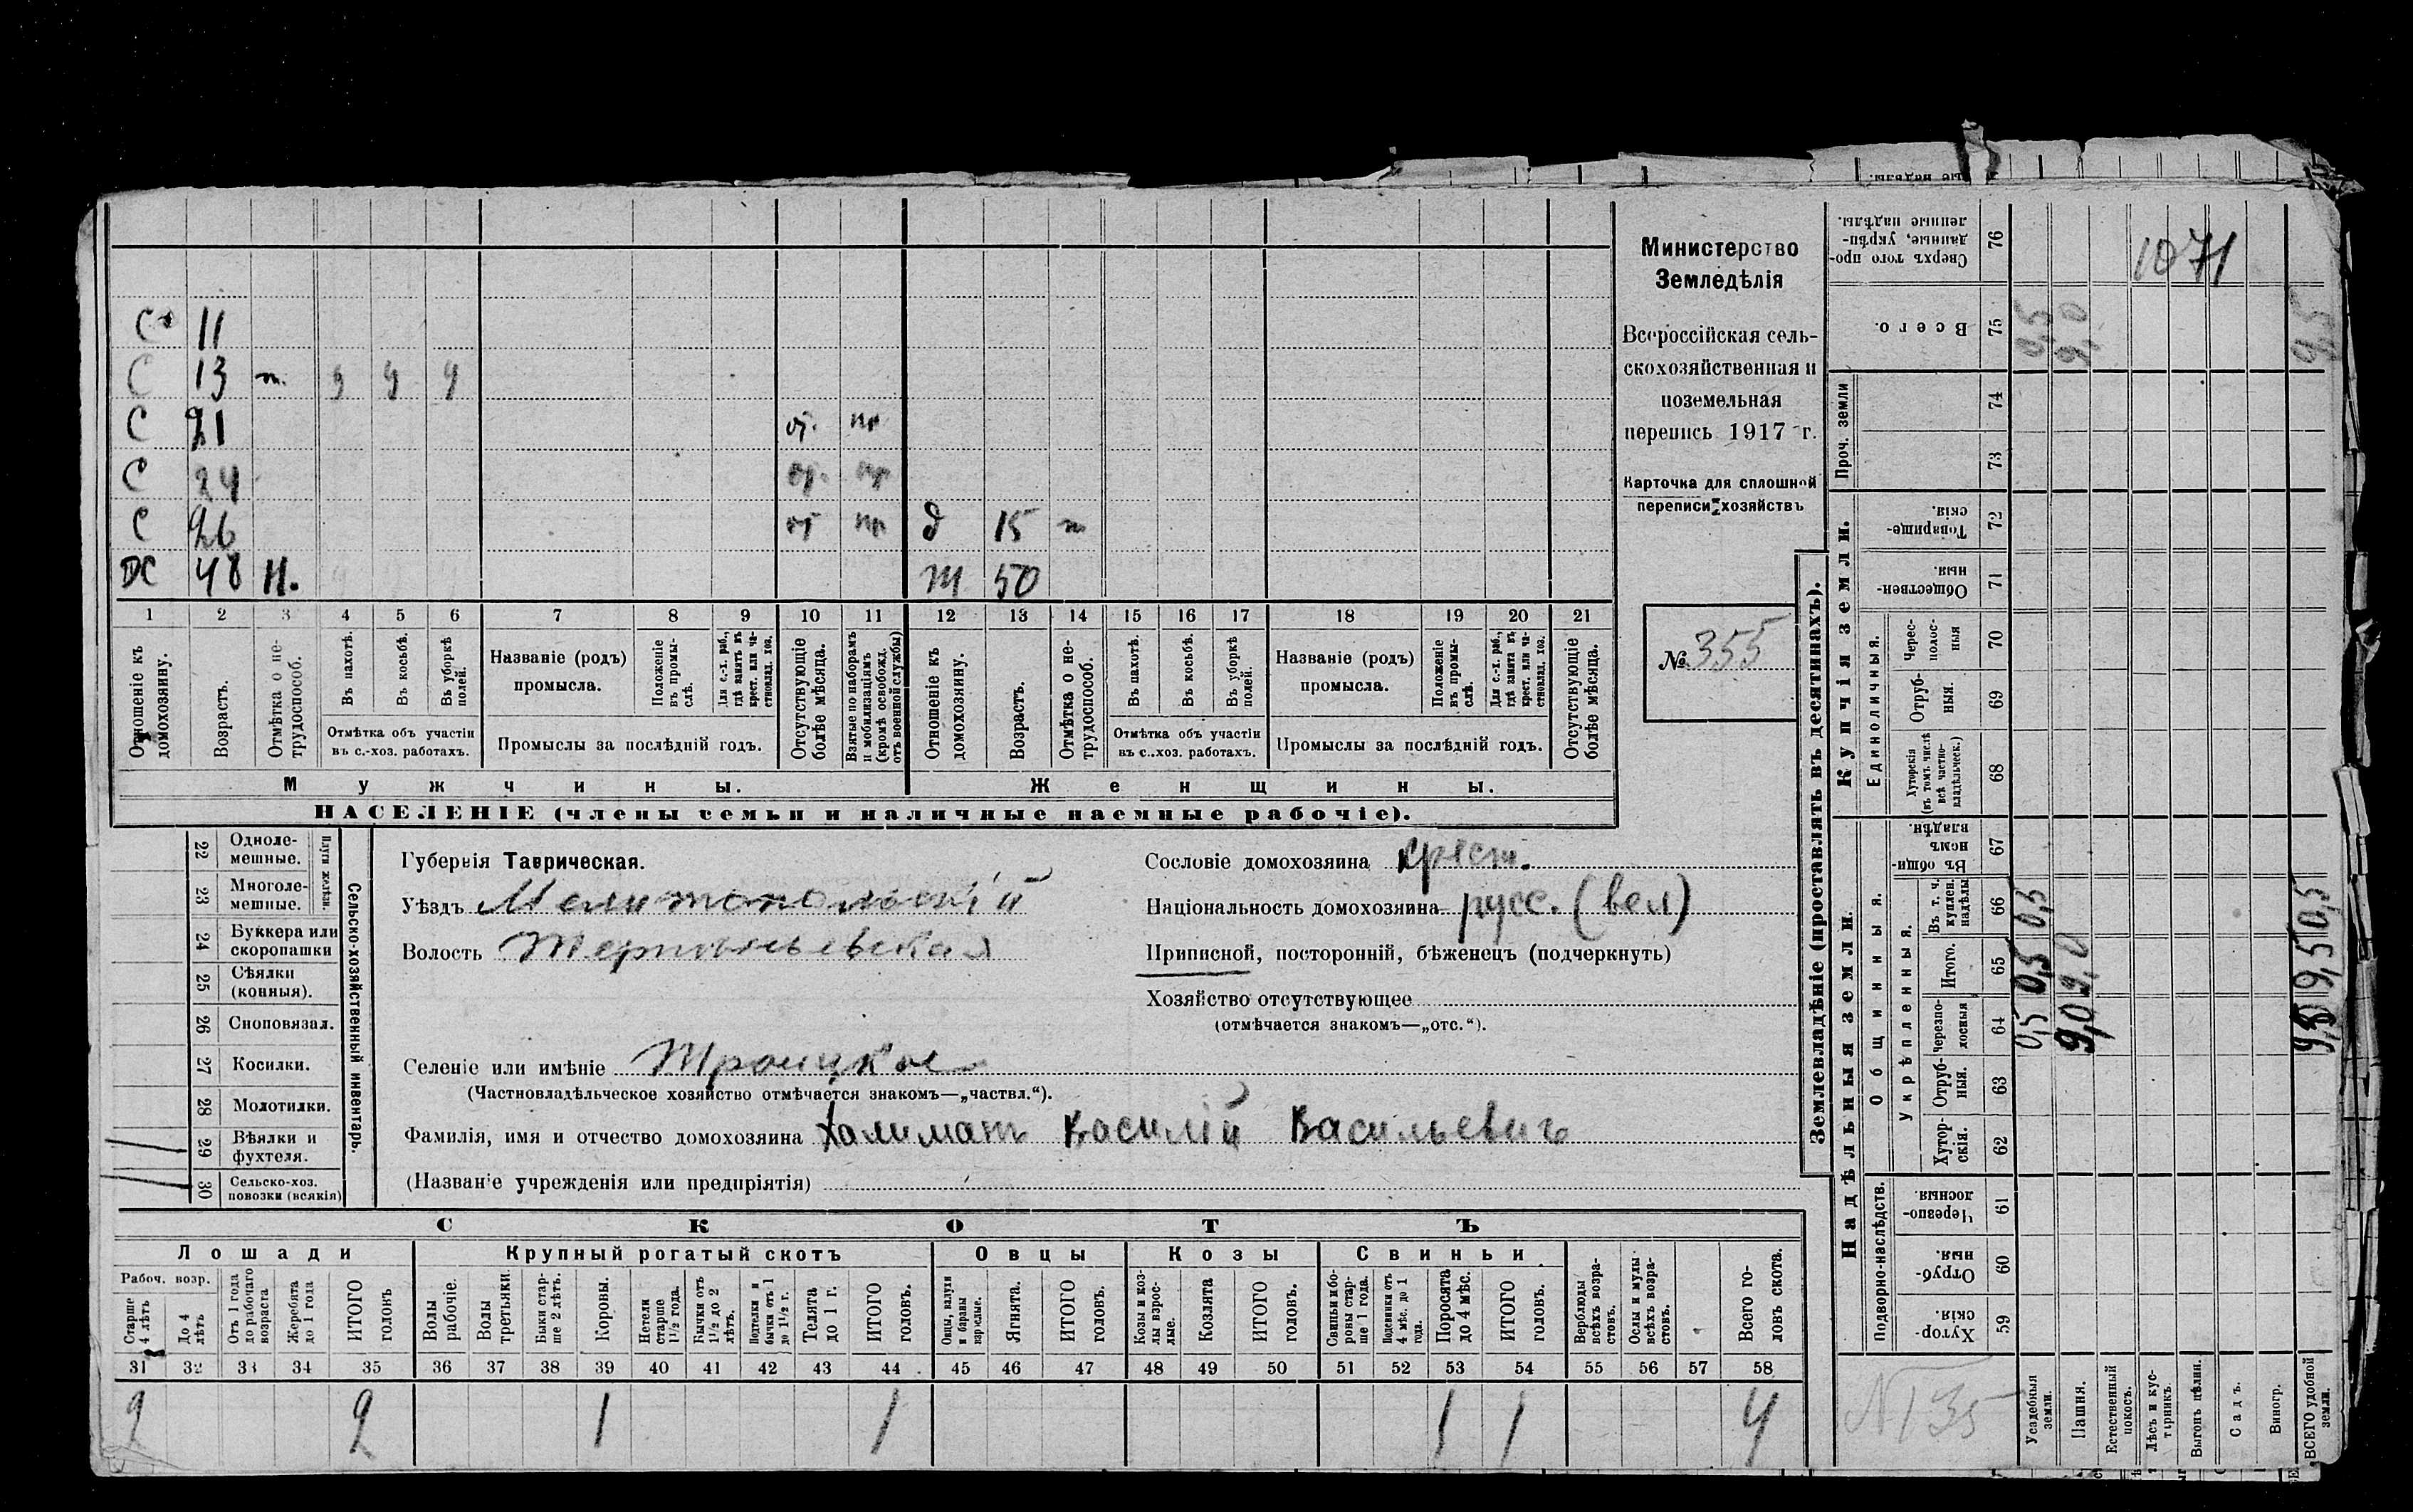 С 11
С 13 т.
С 21 от. пр
С 24 от. пр
С 26 от пр д 15 т
ДС 48 Н. т 50
1 2 3 4 5 6 7 8 9 10 11 12 13 14 15 16 17 18 19 20 21
Отношеніе къ домохозяину.
Возрастъ.
Отмѣтка о нетрудоспособ.
Въ пахотѣ.
Въ косьбѣ.
Въ уборкѣ полей.
Отмѣтка объ участіи въ с.-хоз. работахъ.
Названіе (родъ) промысла.
Положеніе въ промыслѣ.
Для с.-х. раб., гдѣ занятъ въ крест. или частновлад. хоз.
Промыслы за послѣдній годъ.
Отсутствующіе болѣе мѣсяца.
Взятые по наборамъ и мобилизаціямъ (кромѣ освобожд. отъ военной службы)
Отношеніе къ домохозяину.
Возрастъ.
Отмѣтка о нетрудоспособ.
Въ пахотѣ.
Въ косьбѣ.
Въ уборкѣ полей.
Отмѣтка объ участіи въ с.-хоз. работахъ.
Названіе (родъ) промысла.
Положеніе въ промыслѣ.
Для с.-х. раб., гдѣ занята въ крест. или частновлад. хоз.
Промыслы за послѣдній годъ.
Отсутствующіе болѣе мѣсяца.
Мужчины. Женщины.
НАСЕЛЕНІЕ (члены семьи и наличные наемные рабочіе).
Министерство
Земледѣлія
Всероссійская сель-
скохозяйственная и
поземельная
перепись 1917 г.
Карточка для сплошной
переписи хозяйствъ
№ 355
22 Одноле-
мешные.
23 Многоле-
мешные.
Плуги желѣзн.
24 Буккера или
скоропашки
25 Сѣялки
(конныя).
26 Сноповязал.
27 Косилки.
28 Молотилки.
29 Вѣялки и
фухтеля.
30 Сельско-хоз.
повозки (всякія)
Сельско-хозяйственный инвентарь.
Губернія Таврическая.
Уѣздъ Мелитопольскій
Волость
Селеніе или имѣніе Троицкое
(Частновладѣльческое хозяйство отмѣчается знакомъ—„частвл.“).
Фамилія, имя и отчество домохозяина Халиманъ Василій Васильевич
(Названіе учрежденія или предпріятія)
Сословіе домохозяина крест.
Національность домохозяина русс. (вел)
Приписной, посторонній, бѣженецъ (подчеркнуть)
Хозяйство отсутствующее
(отмѣчается знакомъ—„отс.“).
СКОТЪ
Лошади Крупный рогатый скотъ Овцы Козы Свиньи
Рабоч. возр.
Старше 4 лѣтъ
До 4 лѣтъ
Отъ 1 года до рабочаго возраста
Жеребята до 1 года
ИТОГО головъ
Волы рабочіе.
Волы третьяки.
Быки старше 2 лѣтъ.
Коровы.
Нетели старше 1½ года.
Бычки отъ 1½ до 2 лѣтъ.
Подтелки и бычки отъ 1 до 1½ г.
Телята до 1 г.
ИТОГО головъ.
Овцы, валухи и бараны взрослые.
Ягнята.
ИТОГО головъ.
Козы и козлы взрослые.
Козлята
ИТОГО головъ.
Свиньи и боровы старше 1 года.
Подсвинки отъ 4 мѣс. до 1 года.
Поросята до 4 мѣс.
ИТОГО головъ.
Верблюды всѣхъ возрастовъ.
Ослы и мулы всѣхъ возрастовъ.
Всего головъ скота.
31 32 33 34 35 36 37 38 39 40 41 42 43 44 45 46 47 48 49 50 51 52 53 54 55 56 57 58
2 2 1 1 1 1 4
Землевладѣніе (проставлять въ десятинахъ).
Надѣльныя земли. Купчія земли. Проч. земли
Подворно-наслѣдств.
Общинныя.
Укрѣпленныя.
Единоличныя.
Хуторскія. 59
Отрубныя. 60
Черезполосныя 61
Хуторскія. 62
Отрубныя. 63
Черезполосныя 64
Итого. 65
Въ т. ч. куплен. надѣлы 66
Въ общинномъ владѣн. 67
Хуторскія (въ томъ числѣ всѣ частновладѣльческ.) 68
Отрубныя. 69
Чересполосныя 70
Общественныя. 71
Товарищескія. 72
73
74
Всего. 75
Сверхъ того проданные, укрѣпленные надѣлы. 76
1071
N 135
Усадебныя земли. 0,5 0,5 0,5
Пашня. 9,0 9,0 9,0
Естественный покосъ.
Лѣсъ и кустарникъ.
Выгонъ цѣлин.
Садъ.
Виногр.
ВСЕГО удобной земли. 9,5 9,5 0,5 9,5